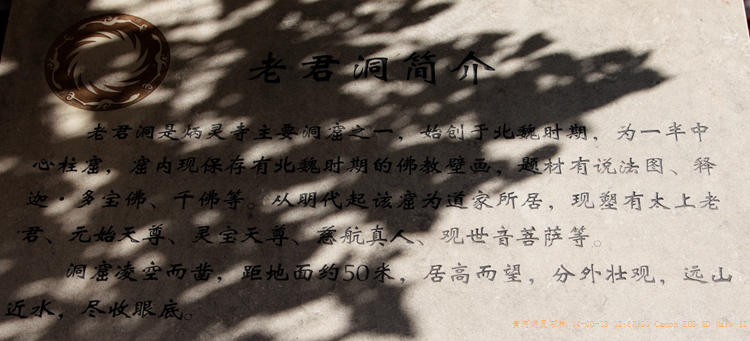 老君洞简介
老君洞是炳灵寺主要洞窟之一，始创于北魏时期，为一半中
心柱窟，窟内现保存有北魏时期的佛教壁画，题材有说法图、释
迦·多宝佛、千佛等。从明代起该窟为道家所居，现塑有太上老
君、元始天尊、灵宝天尊、慈航真人、观世音菩萨等。
洞窟凌空而凿，距地面约50米，居高而望，分外壮观，远山
近水，尽收眼底。